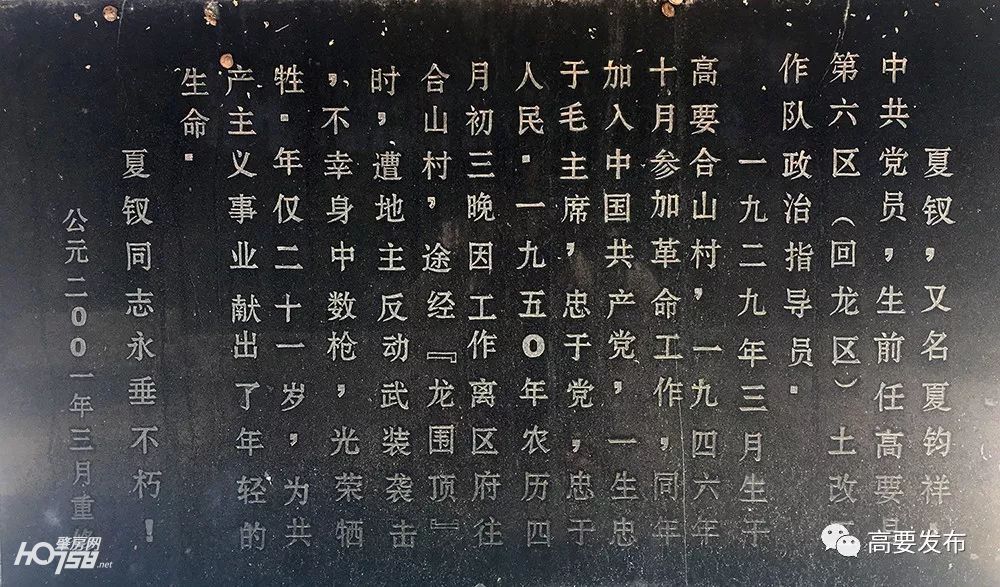 夏钗，又名夏钧祥。
中共党员，生前任高要县
第六区（回龙区）土改
作队政治指导员。
一九二九年三月生于
高要合山村，一九四六年
十月参加革命工作，同年
加入中国共产党，一生忠
于毛主席，忠于党，忠于
人民。一九五0年农历四
月初三晚因工作离区府往
合山村，途经『龙围顶』
时，遭地主反动武装袭击
，不幸身中数枪，光荣牺
牲。年仅二十一岁，为共
产主义事业献出了年轻的
生命。
夏钗同志永垂不朽！
公元二00一年三月重
肇房网
HO758.net
高要发布